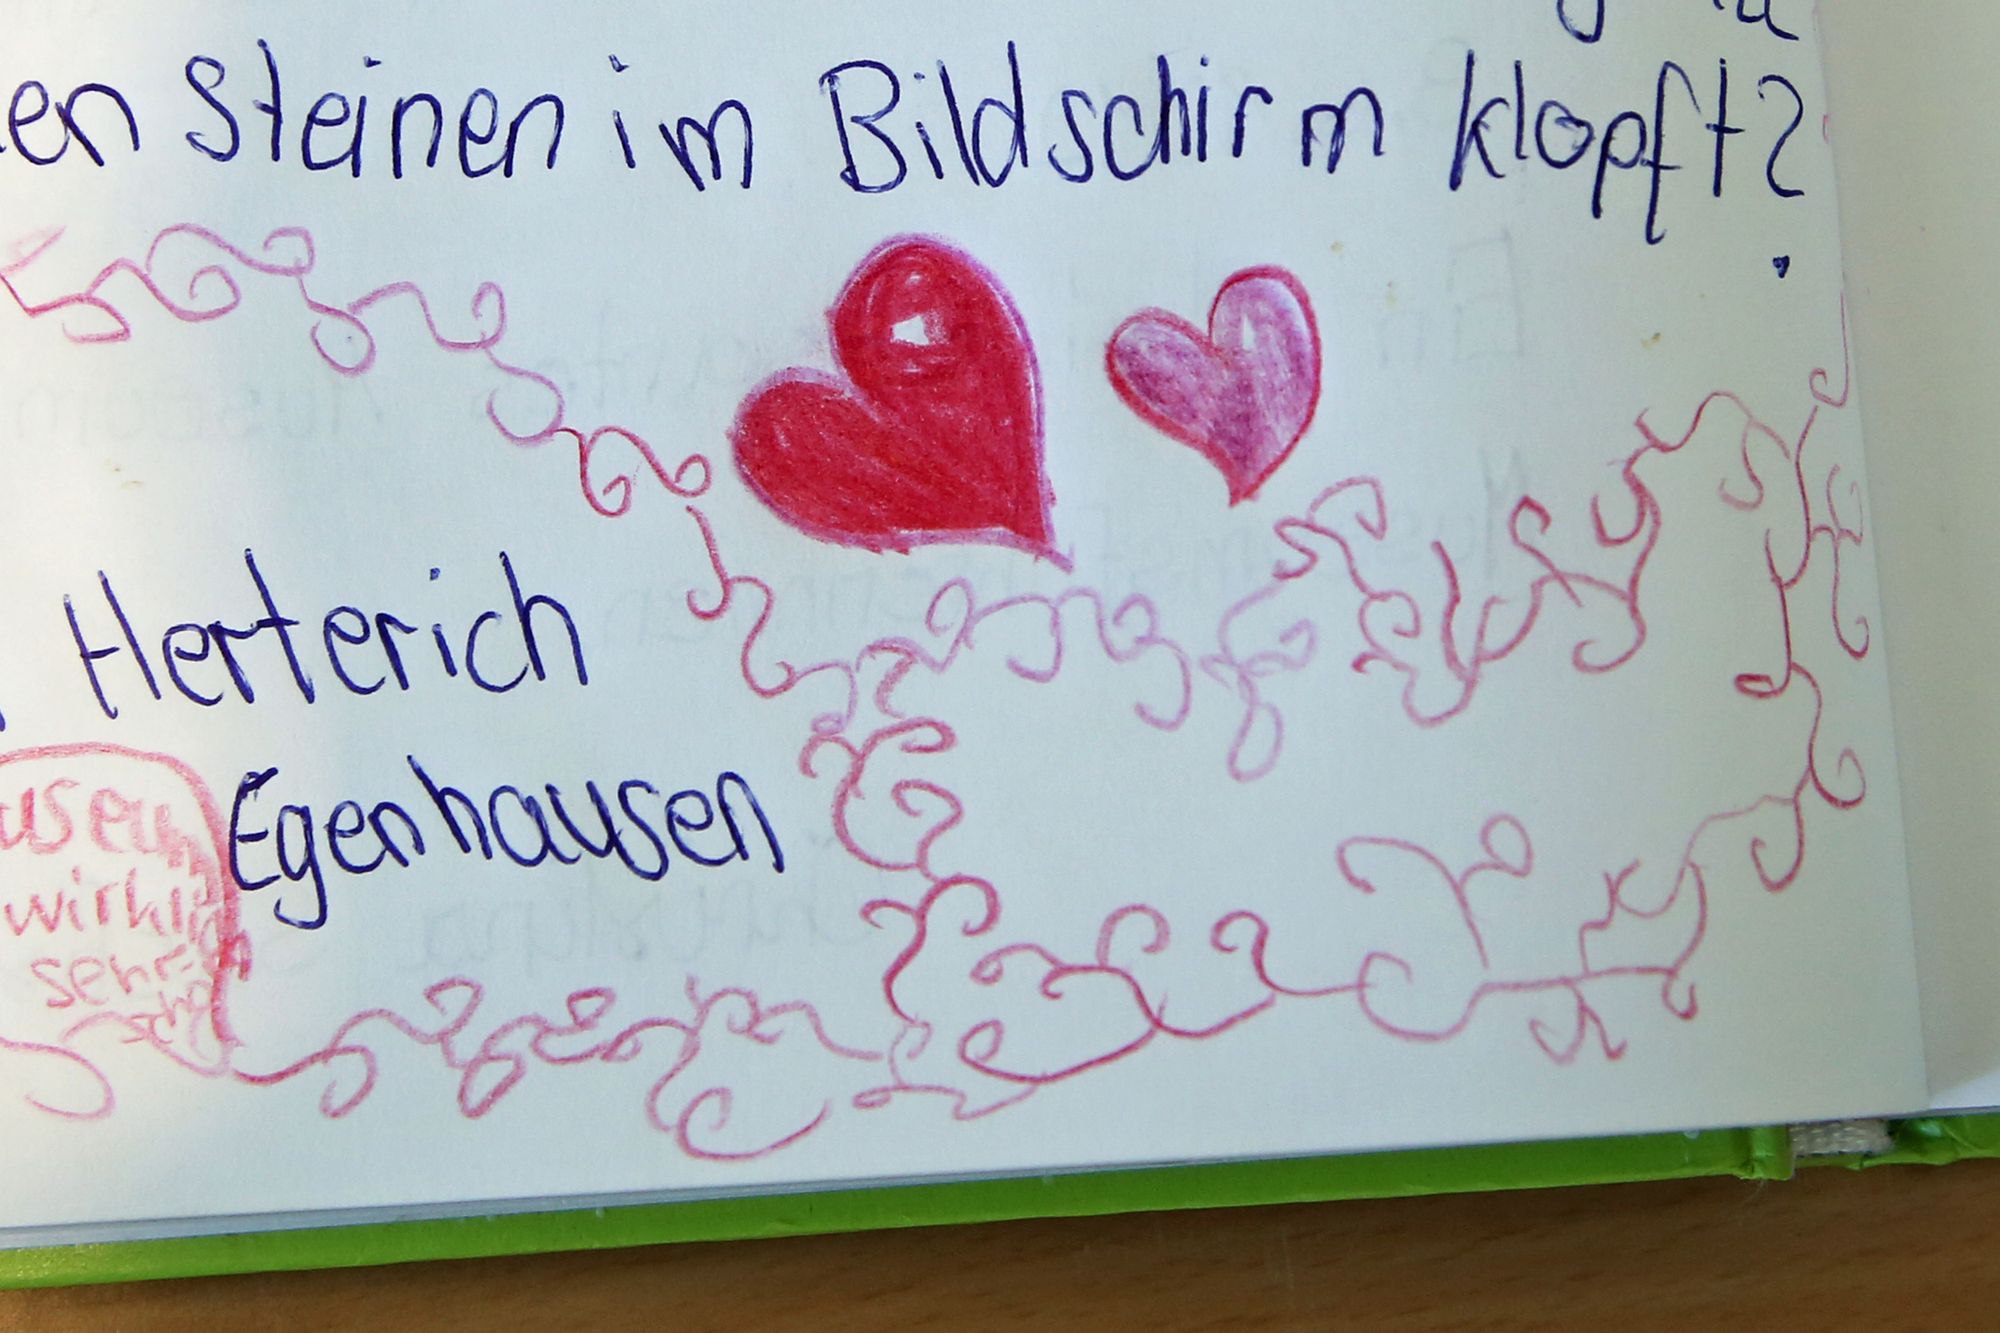 en Steinen im Bildschirm klopft?
Herterich
Egenhausen
useum
wirklich
sehr